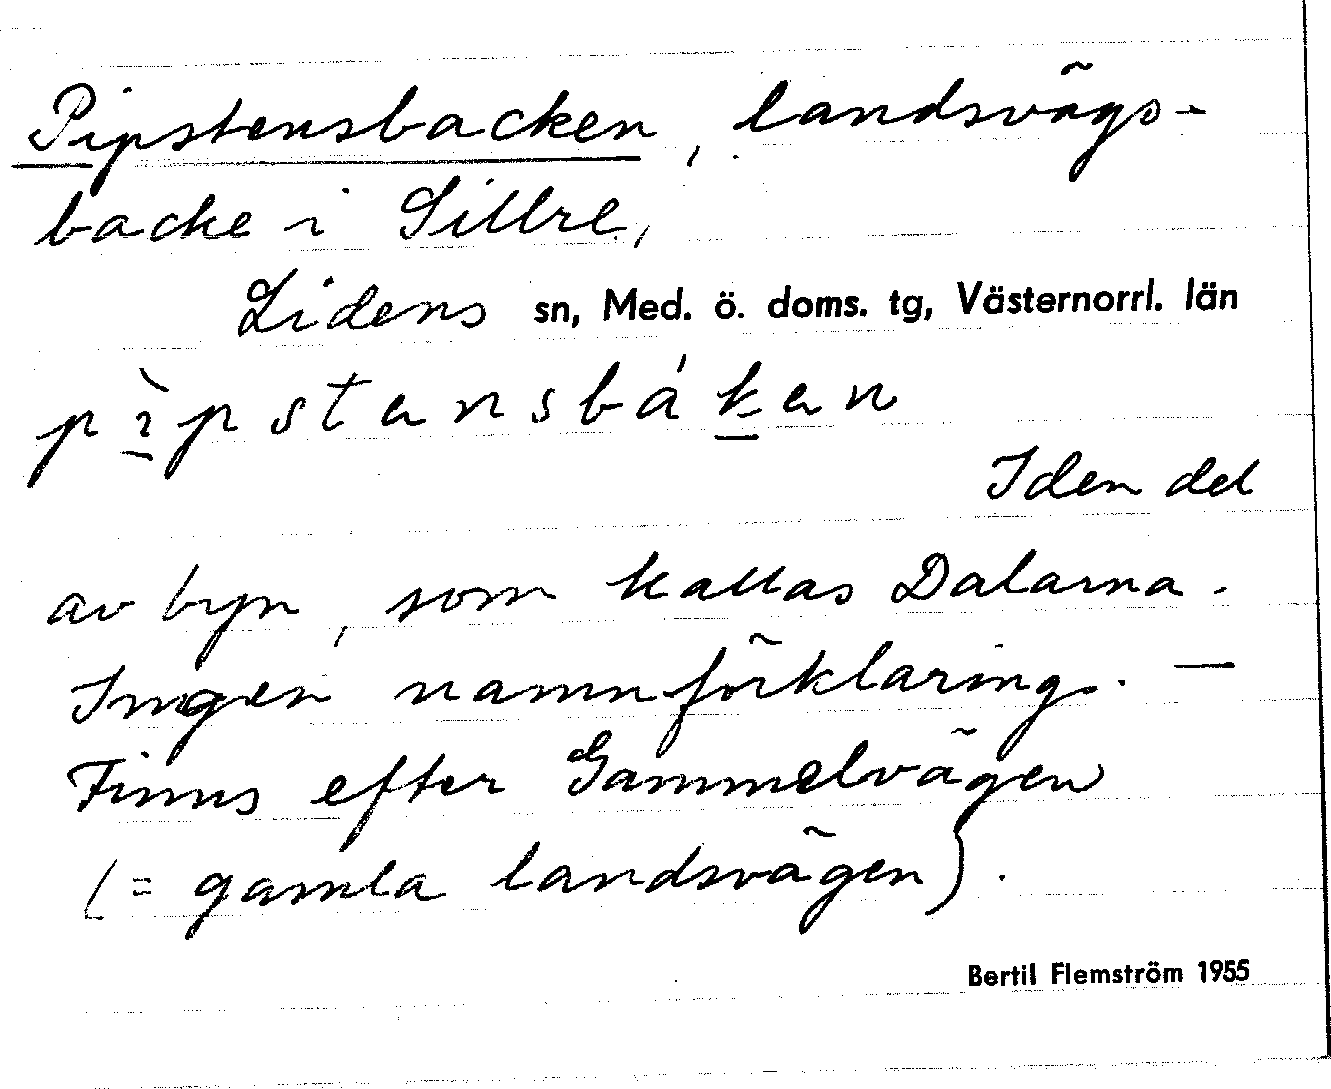 Pipstensbacken, landsvägs-
backe i Sillre,
Lidens sn, Med. ö. doms. tg, Västernorrl. län
pìpstensbáken
I den del
av byn, som kallas Dalarna.
Ingen namnförklaring. —
Finns efter Gammelvägen
(= gamla landsvägen).
Bertil Flemström 1955